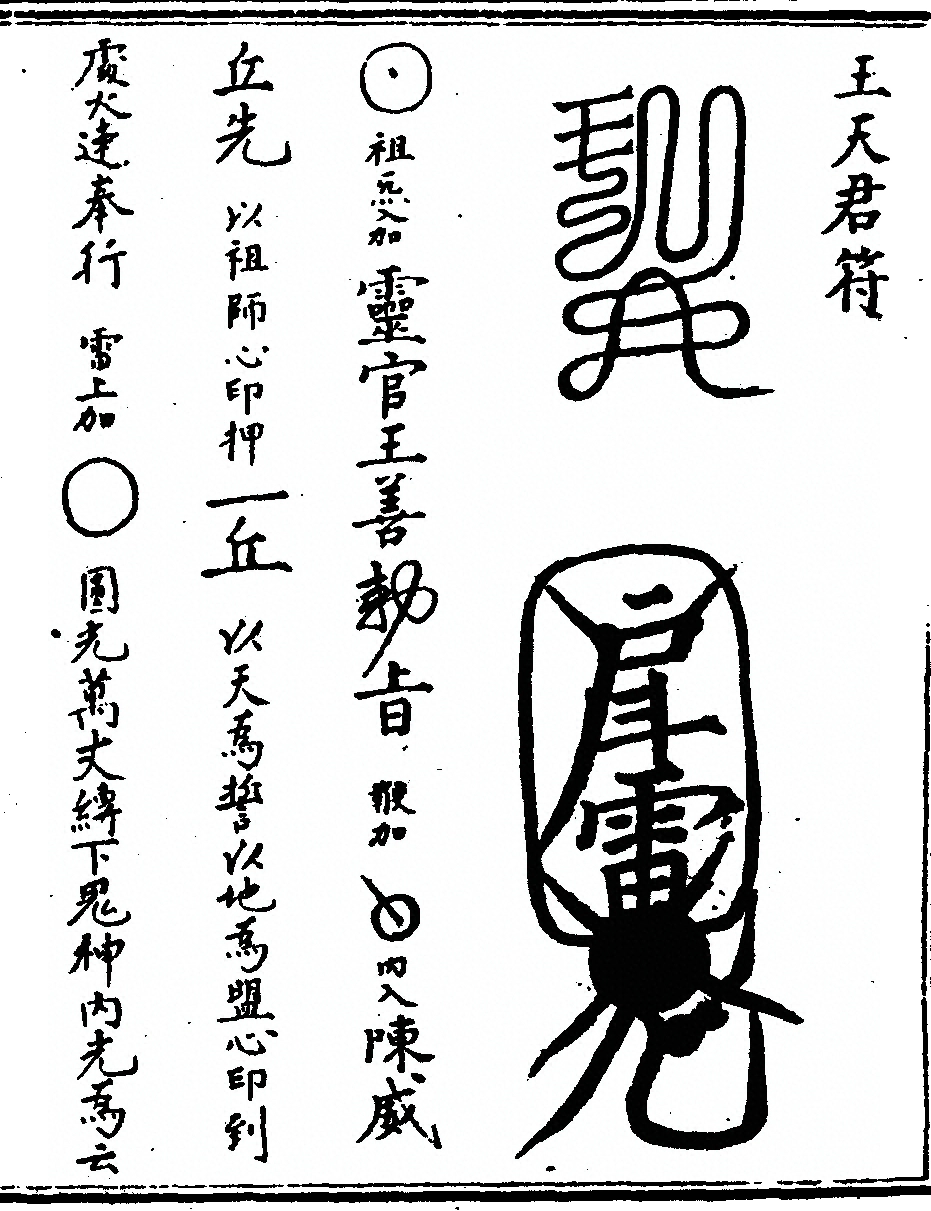 王天君符
祖炁入加靈官王善勅旨鞭加內入陳威
丘先以祖師心印押一丘以天爲誓以地爲盟心印到
處火速奉行雷上加圓光萬丈縛下鬼神內光爲云